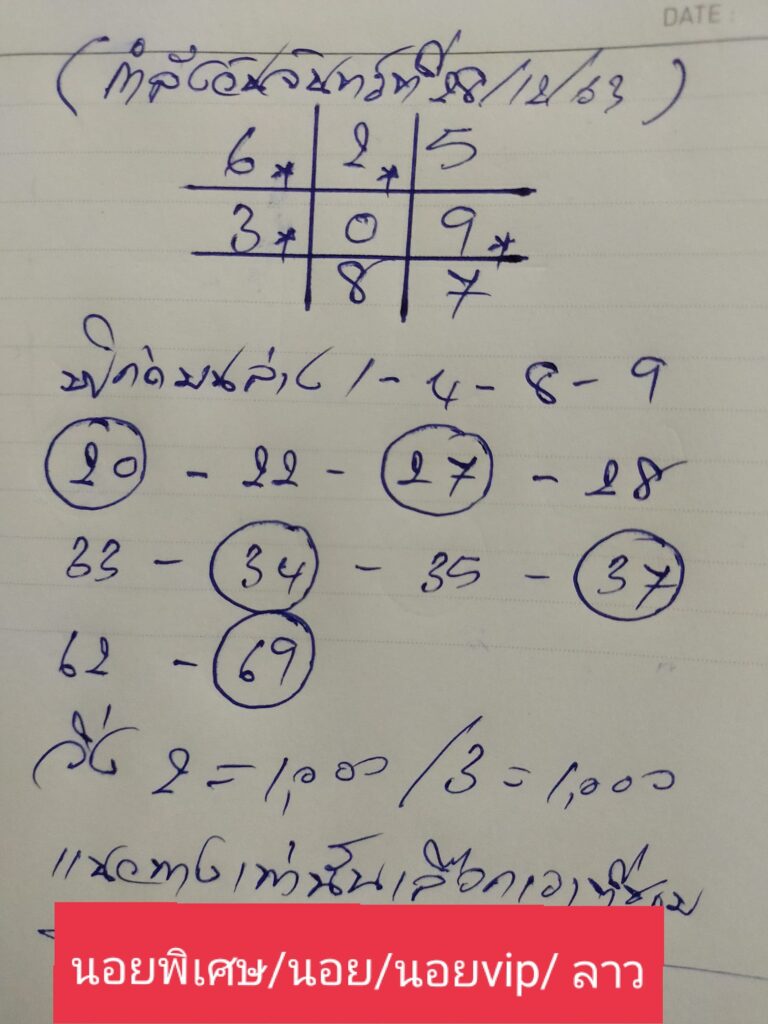 DATE :
(กำลังวันจันทร์ที่ 28/12/63)
6* 2* 5
3* 0 9*
8 7
พิกัดบนล่าง 1 - 4 - 8 - 9
20 - 22 - 27 - 28
33 - 34 - 35 - 37
62 - 69
วิ่ง 2 = 1,000 / 3 = 1,000
แนวทางเท่านั้นเลือกเอาที่ชอบ
นอยพิเศษ/นอย/นอยvip/ ลาว